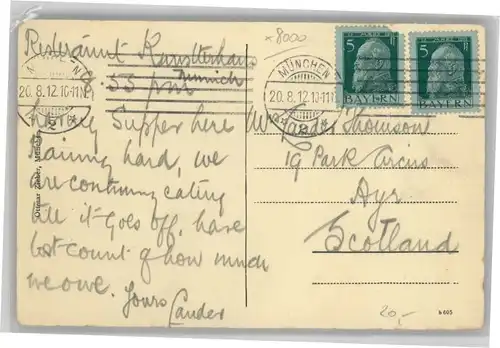 Restaurant Kunstlerhaus
Munich
8.55 pm
having Supper here
raining hard, we
are continuing eating
till it goes off, have
lost count of how much
we owe.
Yours Lauder
x 8000
MÜNCHEN
20.8.12.10-11
MÜNCHEN
20.8.12.10-11
5 5
BAYERN
BAYERN
Mr Lauder Thomson
19 Park Circus
Ayr
Scotland
Ottmar Zieher, München
20,-
b 605